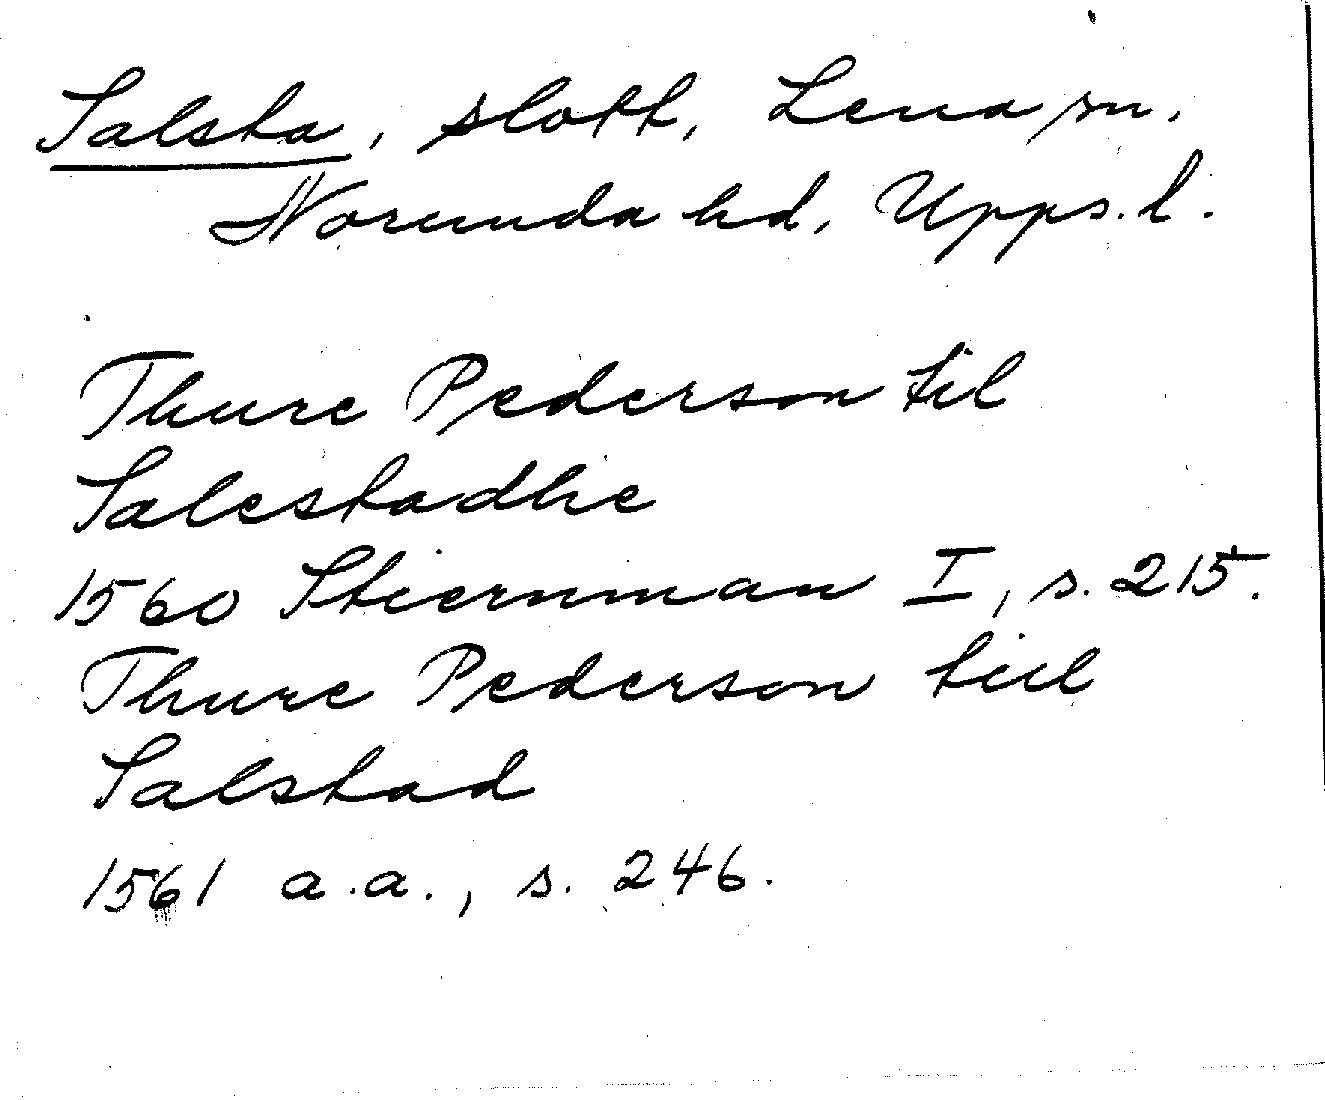 Salsta, slott, Lena sn.
Norunda hd, Upps. l.
Thure Pederson til
Salestadhe
1560 Stiernman I, s. 215.
Thure Pederson tiil
Salstad
1561 a.a., s. 246.